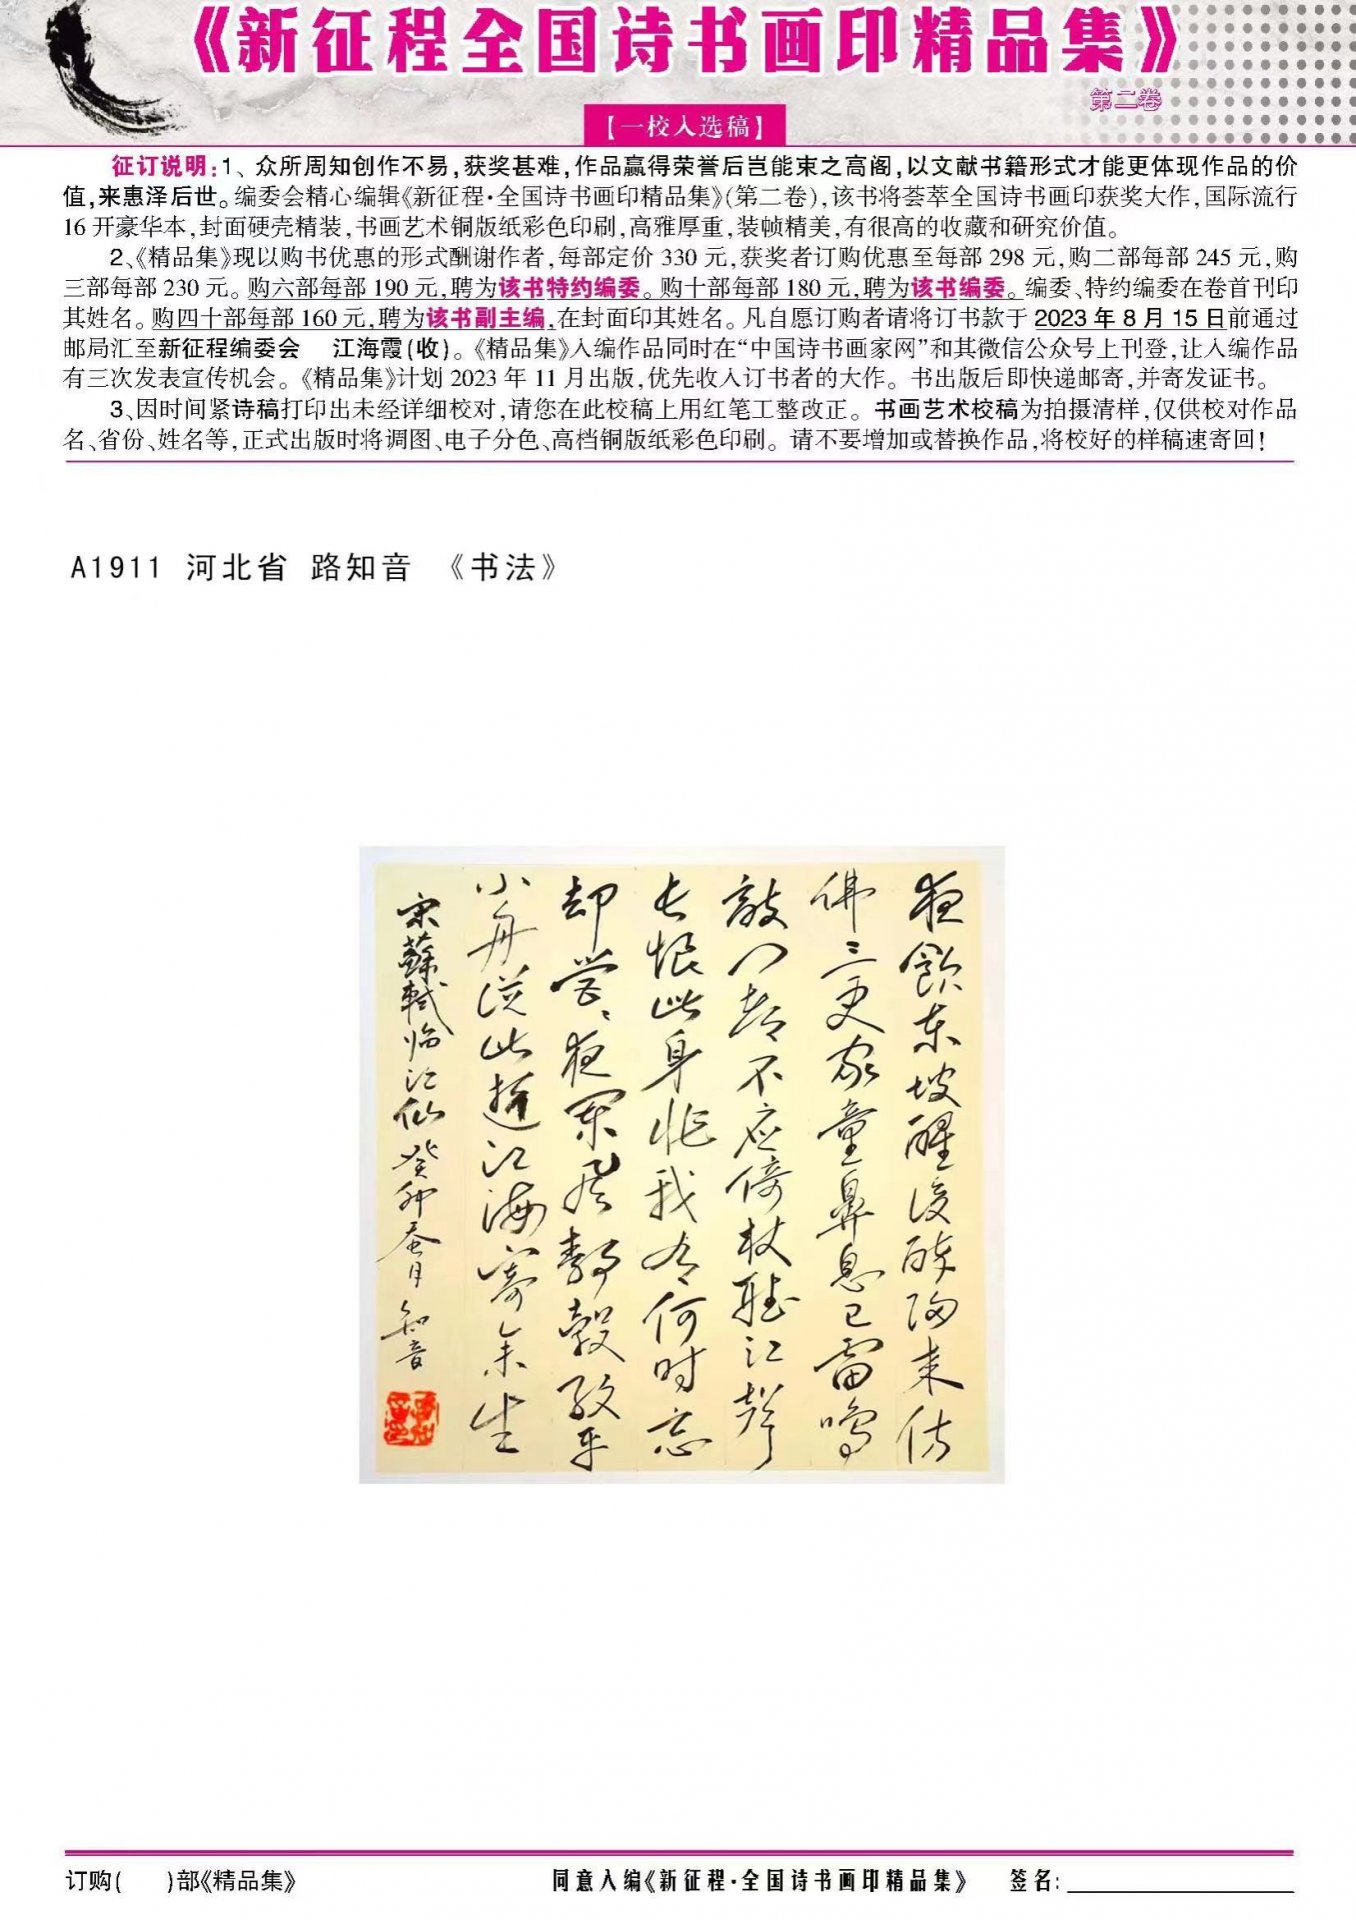 《新征程全国诗书画印精品集》
第二卷
【一校入选稿】
征订说明:1、众所周知创作不易,获奖甚难,作品赢得荣誉后岂能束之高阁,以文献书籍形式才能更体现作品的价
值,来惠泽后世。编委会精心编辑《新征程·全国诗书画印精品集》(第二卷),该书将荟萃全国诗书画印获奖大作,国际流行
16开豪华本,封面硬壳精装,书画艺术铜版纸彩色印刷,高雅厚重,装帧精美,有很高的收藏和研究价值。
2、《精品集》现以购书优惠的形式酬谢作者,每部定价330元,获奖者订购优惠至每部298元,购二部每部245元,购
三部每部230元。购六部每部190元,聘为该书特约编委。购十部每部180元,聘为该书编委。编委、特约编委在卷首刊印
其姓名。购四十部每部160元,聘为该书副主编,在封面印其姓名。凡自愿订购者请将订书款于2023年8月15日前通过
邮局汇至新征程编委会 江海霞(收)。《精品集》入编作品同时在“中国诗书画家网”和其微信公众号上刊登,让入编作品
有三次发表宣传机会。《精品集》计划2023年11月出版,优先收入订书者的大作。书出版后即快递邮寄,并寄发证书。
3、因时间紧诗稿打印出未经详细校对,请您在此校稿上用红笔工整改正。书画艺术校稿为拍摄清样,仅供校对作品
名、省份、姓名等,正式出版时将调图、电子分色、高档铜版纸彩色印刷。请不要增加或替换作品,将校好的样稿速寄回!
A1911 河北省 路知音 《书法》
夜飲东坡醒復醉归来仿
佛三更家童鼻息已雷鸣
敲门都不应倚杖聽江聲
长恨此身非我有何时忘
却营、夜阑风静縠纹平
小舟从此逝江海寄余生
宋蘇軾临江仙癸卯春月知音
订购( )部《精品集》
同意入编《新征程·全国诗书画印精品集》 签名: